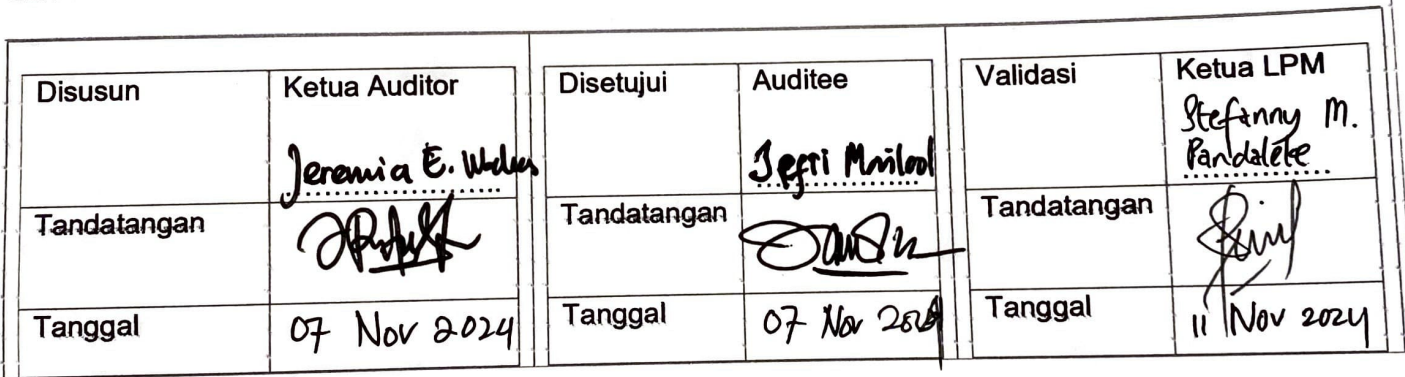 Disusun Ketua Auditor
Jeremia E.
Tandatangan
Tanggal 07 Nov 2024
Disetujui Auditee
Jefri
Tandatangan
Tanggal 07 Nov
Validasi Ketua LPM
Stefanny M.
Pandaleke
Tandatangan
Tanggal 11 Nov 2024